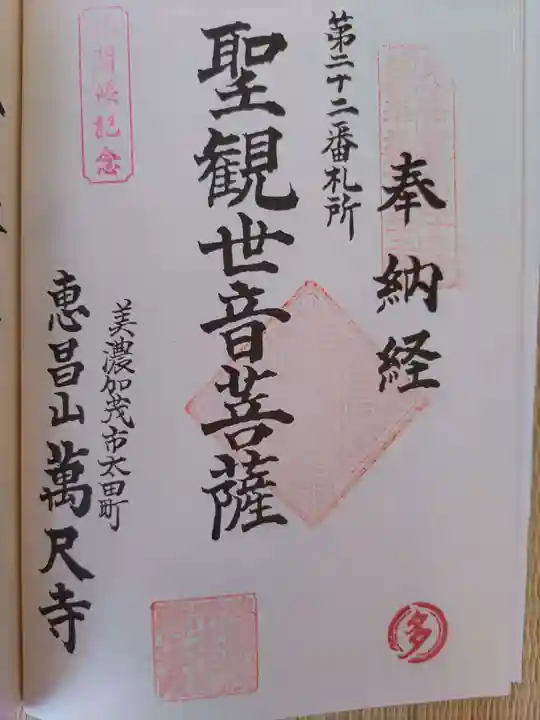 奉納経
第二十二番札所
聖観世音菩薩
美濃加茂市太田町
恵昌山萬尺寺
開帳記念
多